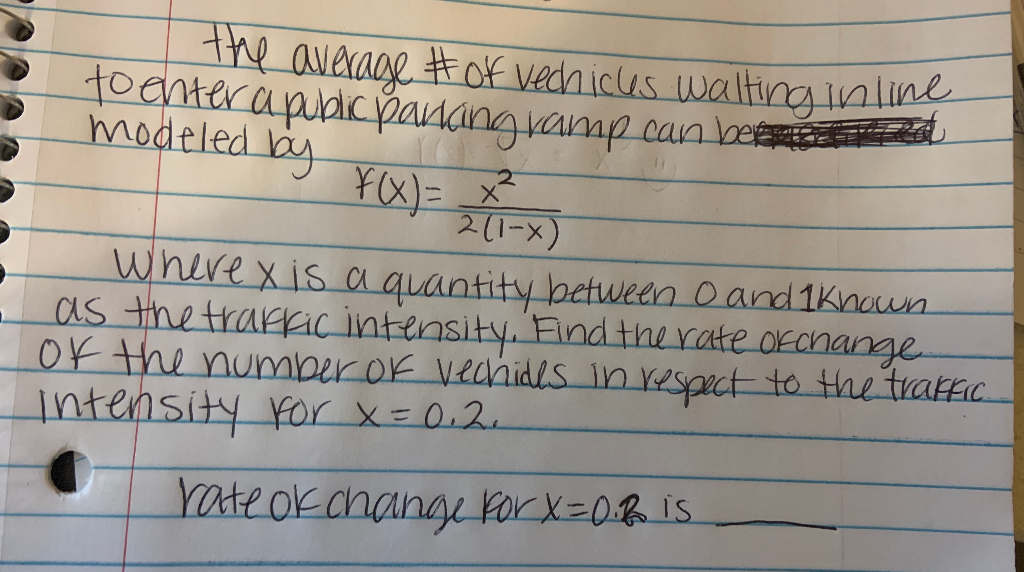 the average # of vechicles waiting in line
to enter a pubic parking ramp can be
modeled by
f(x) = x² / 2(1-x)
where x is a quantity between 0 and 1 known
as the traffic intensity. Find the rate of change
of the number of vechides in respect to the traffic
intensity for x = 0.2.
rate of change for x = 0.2 is ____